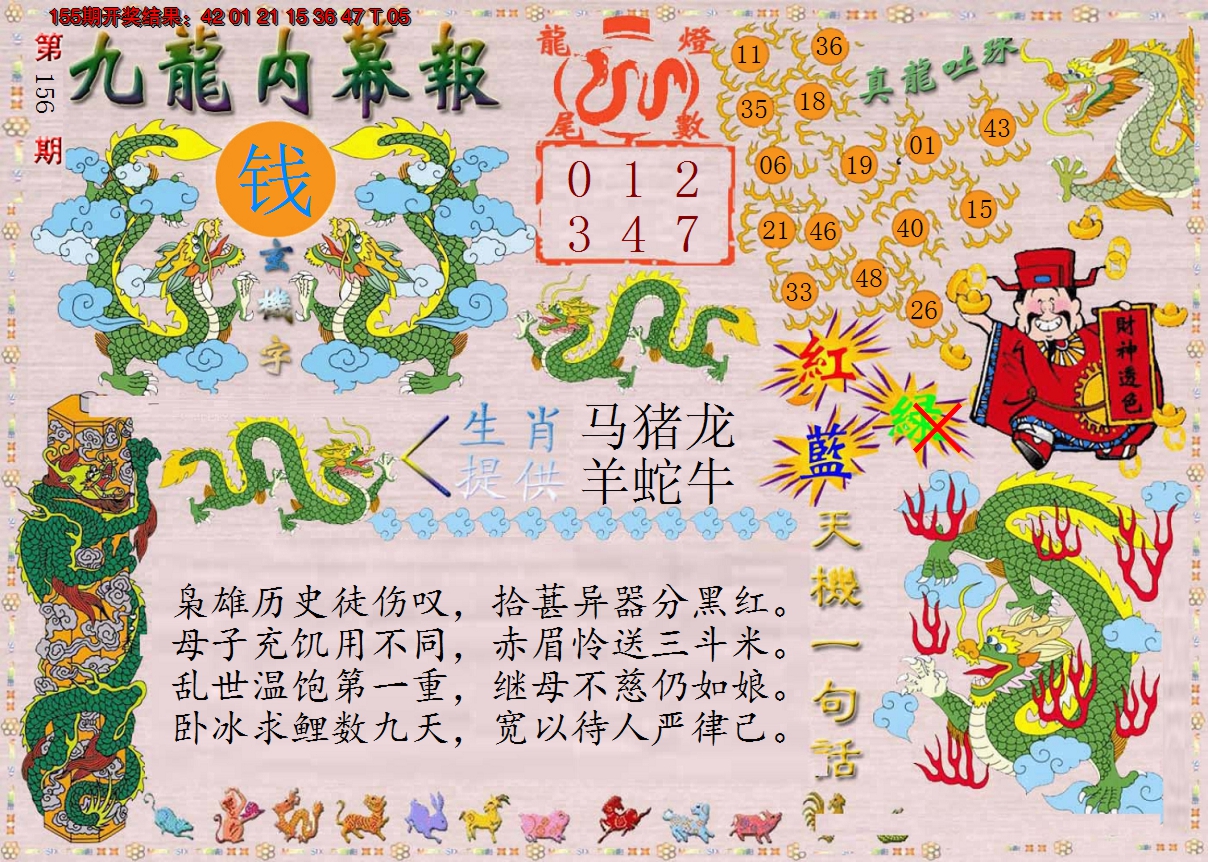 155期开奖结果：42 01 21 15 36 47 T 05
第156期
九龍内幕報
钱
玄機字
龍燈
尾數
0 1 2
3 4 7
真龍吐珠
11 36
35 18
06 19 01 43
21 46 40 15
33 48 26
財神透色
紅
綠
藍
生肖提供
马猪龙
羊蛇牛
天機一句話
枭雄历史徒伤叹，拾葚异器分黑红。
母子充饥用不同，赤眉怜送三斗米。
乱世温饱第一重，继母不慈仍如娘。
卧冰求鲤数九天，宽以待人严律己。